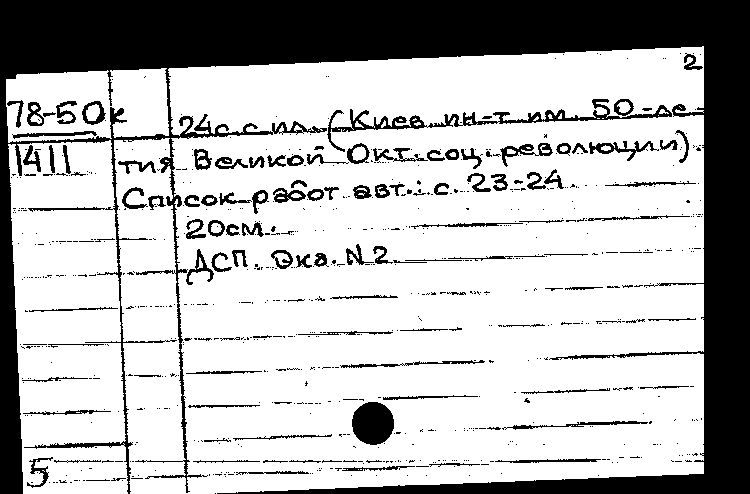 2
78-50к
1411
24с. с ил. (Киев. ин-т им. 50-ле-
тия Великой Окт. соц. революции).
Список работ авт.: с. 23-24.
20см.
ДСП. Экз. N 2.
5